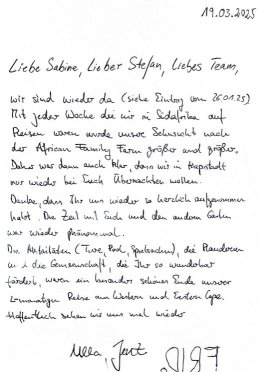 19.03.2025
Liebe Sabine, Lieber Stefan, Liebes Team,
wir sind wieder da (siehe Eintrag vom 26.01.25)
Mit jeder Woche die wir in Südafrika auf
Reisen waren wurde unsre Sehnsucht nach
der African Family Farm größer und größer.
Daher war dann auch klar, dass wir in Kapstadt
nur wieder bei Euch übernachten wollen.
Danke, dass Ihr uns wieder so herzlich aufgenommen
habt. Die Zeit mit Euch und den anderen Gästen
war wieder phänomenal.
Die Aktivitäten (Tiere, Pool, Spielsachen), die Plaudereien
und die Gemeinschaft, die Ihr so wunderbar
fördert, waren ein besonders schönes Ende unserer
Reise am Western und Eastern Cape.
Hoffentlich sehen wir uns mal wieder